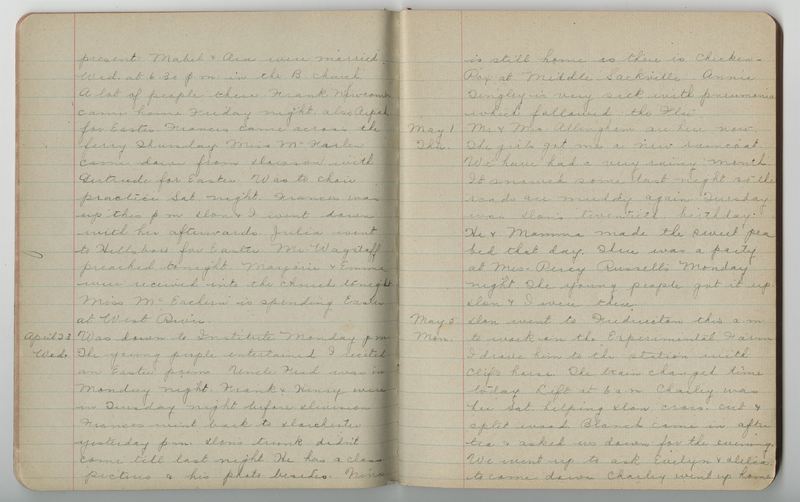 present. Mabel & Ara were married
Wed. at 6.30 p m in the B. Church
A lot of people there Frank Newcomb
came home Friday night also
for Easter Frances came across the
ferry Thursday Miss Mc Harler
came down from with
Gertrude for Easter. Was to choir
practice Sat. night. Frances was
up this p m. & I went down
with her afterwards. Julia went
to Hillsboro for Easter Mr. Wagstaff
preached tonight. Marjorie & Emma
were received into the church tonight
Miss Mc Eachern is spending Easter
at West River.
April 23 Was down to Institute Monday pm
Wed. The young people entertained I recited
an Easter poem. Uncle Fred was in
Monday night. Frank & Henry were
in Tuesday night before
Frances went back to Dorchester
yesterday p.m. trunk didn't
come till last night He has a class
picture & his photo besides.
is still home as there is Chicken-
Pox at Middle Sackville Annie
Tingley is very sick with pneumonia
which followed the Flu
May 1 Mr. & Mrs. Allingham are here now.
Thu. The girls got me a new raincoat
We have had a very rainy month
It snowed some last night so the
roads are muddy again Tuesday
was twentieth birthday.
He & Momma made the sweet pea
bed that day. There was a party
at Mrs. Percy Russell's Monday
night The young people got it up.
& I were there.
May 5 went to Fredericton this a.m
Mon. to work on the Experimental Farm
I drove him to the station with
Clif's horse. The train changed time
today. Left at 6 a m Charley was
here Sat. helping cross. cut &
split wood Blanch came in after
tea & asked us down for the evening.
We went up to ask Evelyn &
to come down Charley went up home